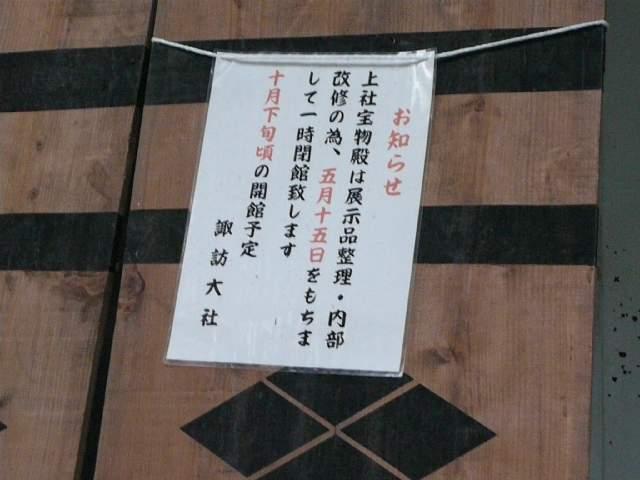 お知らせ
上社宝物殿は展示品整理・内部
改修の為、五月十五日をもちま
して一時閉館致します
十月下旬頃の開館予定
諏訪大社